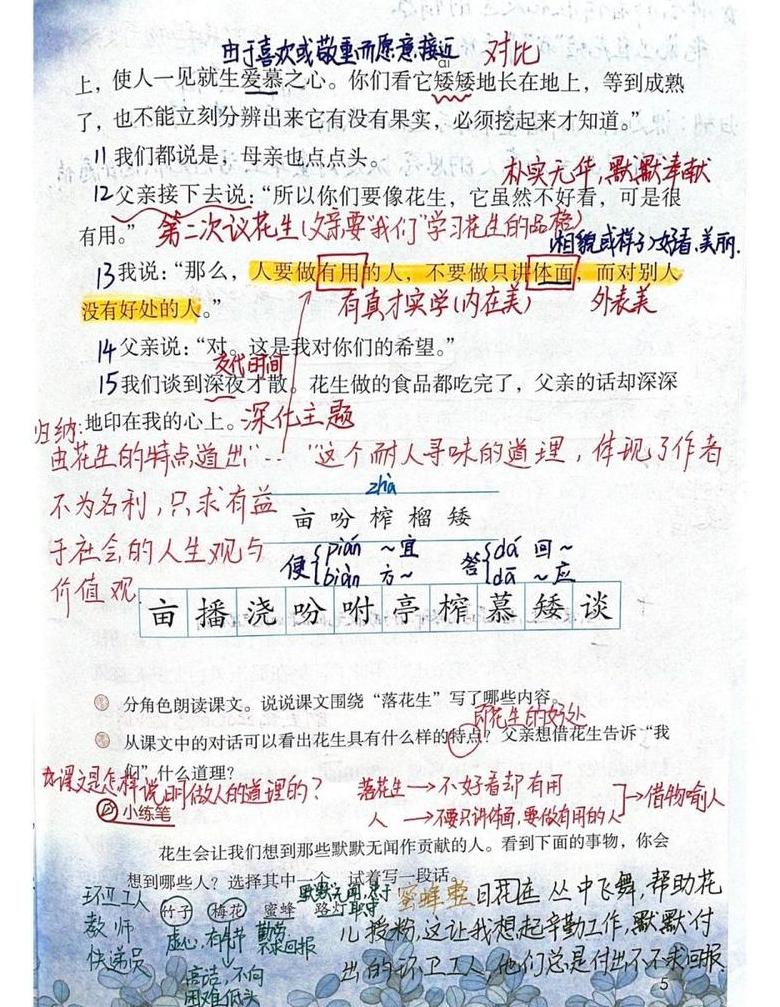 由于喜欢或敬重而愿意接近 对比
上,使人一见就生爱慕之心。你们看它矮矮地长在地上,等到成熟
了,也不能立刻分辨出来它有没有果实,必须挖起来才知道。”
11我们都说是,母亲也点点头。
朴实无华,默默奉献
12父亲接下去说:“所以你们要像花生,它虽然不好看,可是很
有用。” 第二次议花生(父亲要“我们”学习花生的品格)
(相貌或样子)好看.美丽.
13我说:“那么,人要做有用的人,不要做只讲体面,而对别人
没有好处的人。” 有真才实学(内在美) 外表美
14父亲说:“对。这是我对你们的希望。”
交代时间
15我们谈到深夜才散。花生做的食品都吃完了,父亲的话却深深
地印在我的心上。深化主题
归纳:
由花生的特点道出“……”这个耐人寻味的道理,体现了作者
不为名利,只求有益
于社会的人生观与
价值观
zhà
亩吩榨榴矮
便 pián ~宜 答 dá 回~
biàn 方~ dā ~应
亩播浇吩咐亭榨慕矮谈
分角色朗读课文。说说课文围绕“落花生”写了哪些内容。
即花生的好处
从课文中的对话可以看出花生具有什么样的特点?父亲想借花生告诉“我
们”什么道理?
课文是怎样说明做人的道理的? 落花生→不好看却有用
人→不要只讲体面,要做有用的人 →借物喻人
小练笔
花生会让我们想到那些默默无闻作贡献的人。看到下面的事物,你会
想到哪些人?选择其中一个,试着写一段话。
竹子 梅花 蜜蜂 路灯
环卫工人
教师
快递员
虚心,有节
高洁,不向
困难低头
勤劳
不求回报
默默无闻
蜜蜂整日花在丛中飞舞,帮助花
儿授粉,这让我想起辛勤工作,默默付
出的环卫工人,他们总是付出不不求回报
5